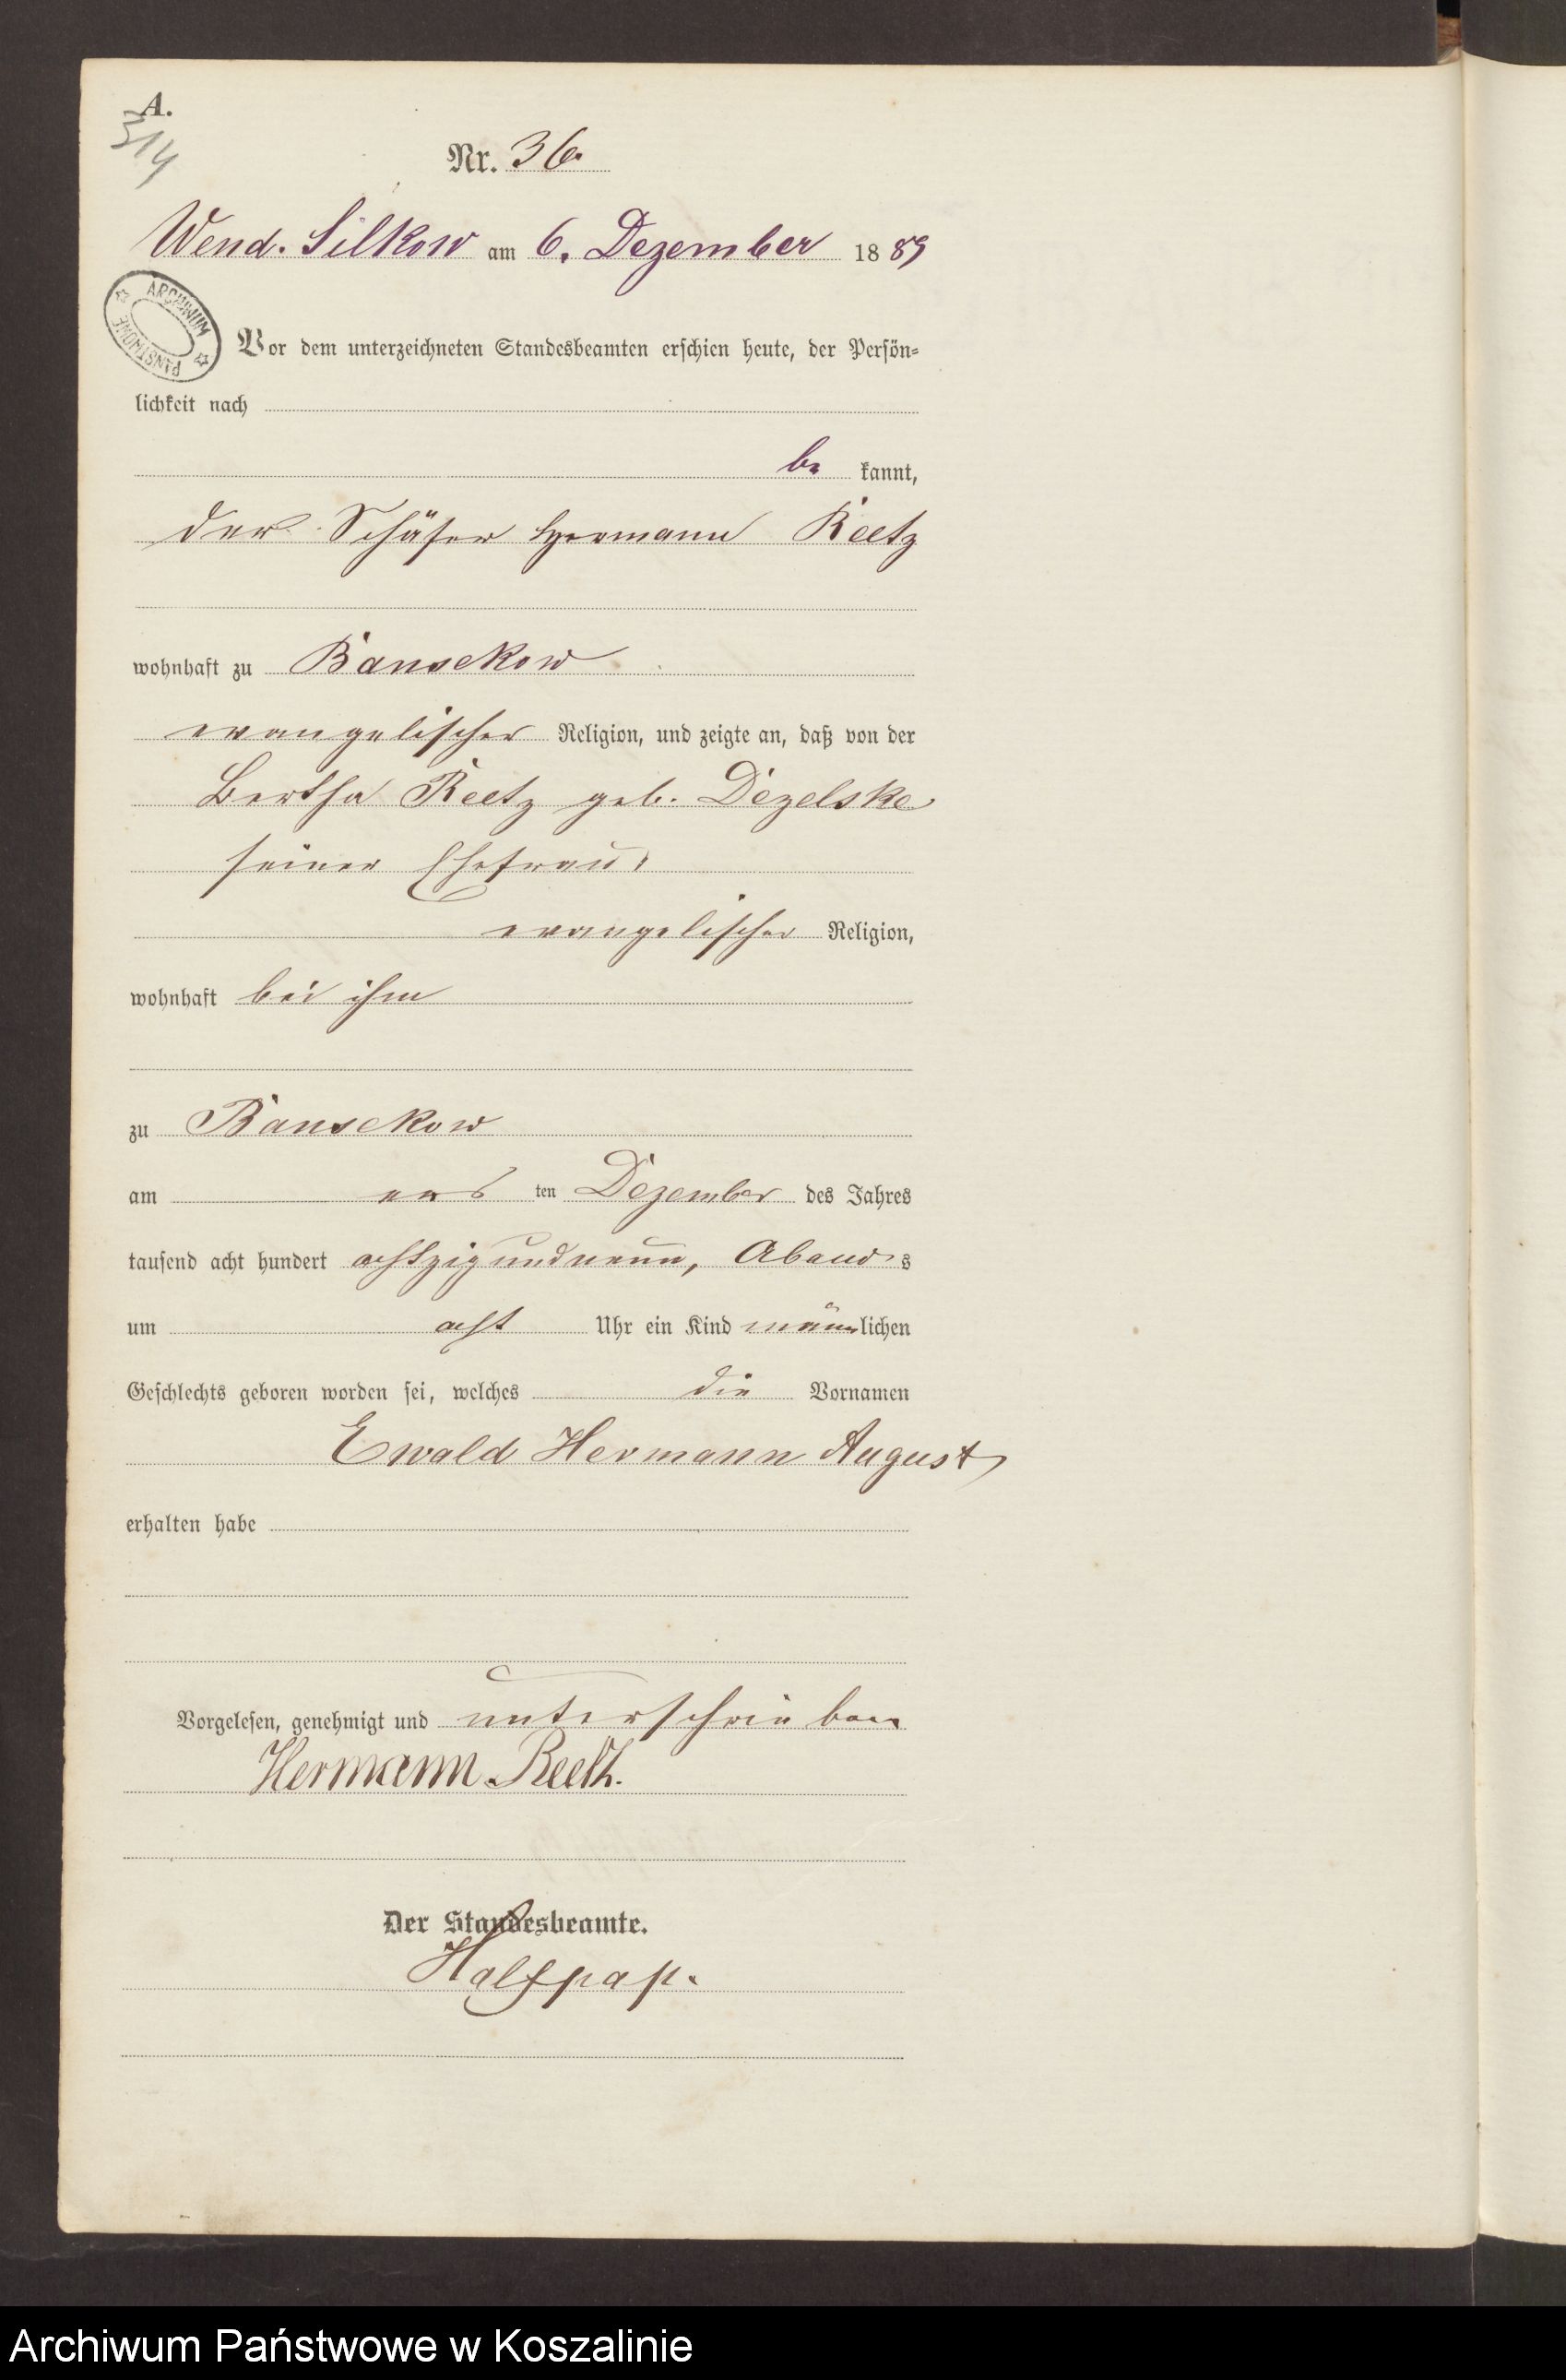 A.
314
Nr. 36.
Wend. Silkow am 6. Dezember 1889
ARCHIWUM PAŃSTWOWE
Vor dem unterzeichneten Standesbeamten erschien heute, der Persön-
lichkeit nach
be kannt,
der Schäfer Hermann Reetz
wohnhaft zu Bansekow
evangelischer Religion, und zeigte an, daß von der
Bertha Reetz geb. Dezelske
seiner Ehefrau,
evangelischer Religion,
wohnhaft bei ihm
zu Bansekow
am ers ten Dezember des Jahres
tausend acht hundert achtzigundneun, Abends
um acht Uhr ein Kind männlichen
Geschlechts geboren worden sei, welches die Vornamen
Ewald Hermann August
erhalten habe
Vorgelesen, genehmigt und unterschrieben
Hermann Reetz.
Der Standesbeamte.
Halfpap.
Archiwum Państwowe w Koszalinie